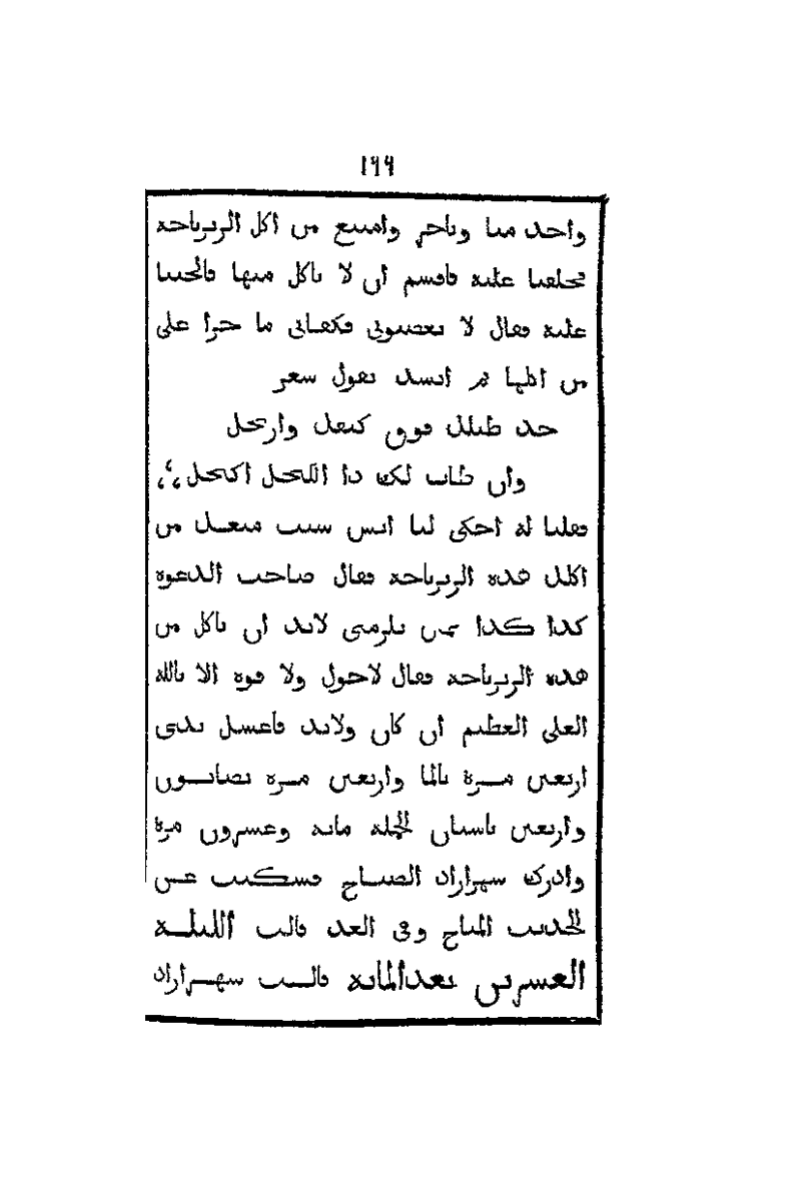 ١٦٦
واحد منا وتاخر وامتنع من اكل الزيرباجة
فحلفنا عليه فاقسم ان لا ياكل منها فالحينا
عليه فقال لا تغصبوني فكفاني ما جرا علي
من اكلها ثم انشد يقول شعر
خد طبلك فوق كتفك وارتحل
وان طاب لك دا الكحل اكتحل
فقلنا له احكي لنا ايش سبب منعك من
اكلك هده الزيرباجة فقال صاحب الدعوة
كدا كدا يمين تلزمني لابد ان تاكل من
هده الزيرباجة فقال لاحول ولا قوة الا بالله
العلي العظيم ان كان ولابد فاغسل يدي
اربعين مرة بالما واربعين مرة بصابون
واربعين باشنان الجملة ماية وعشرون مرة
وادرك شهرازاد الصباح فسكتت عن
الحديث المباح وفي الغد قالت الليلة
العشرين بعدالماية قالت شهرازاد